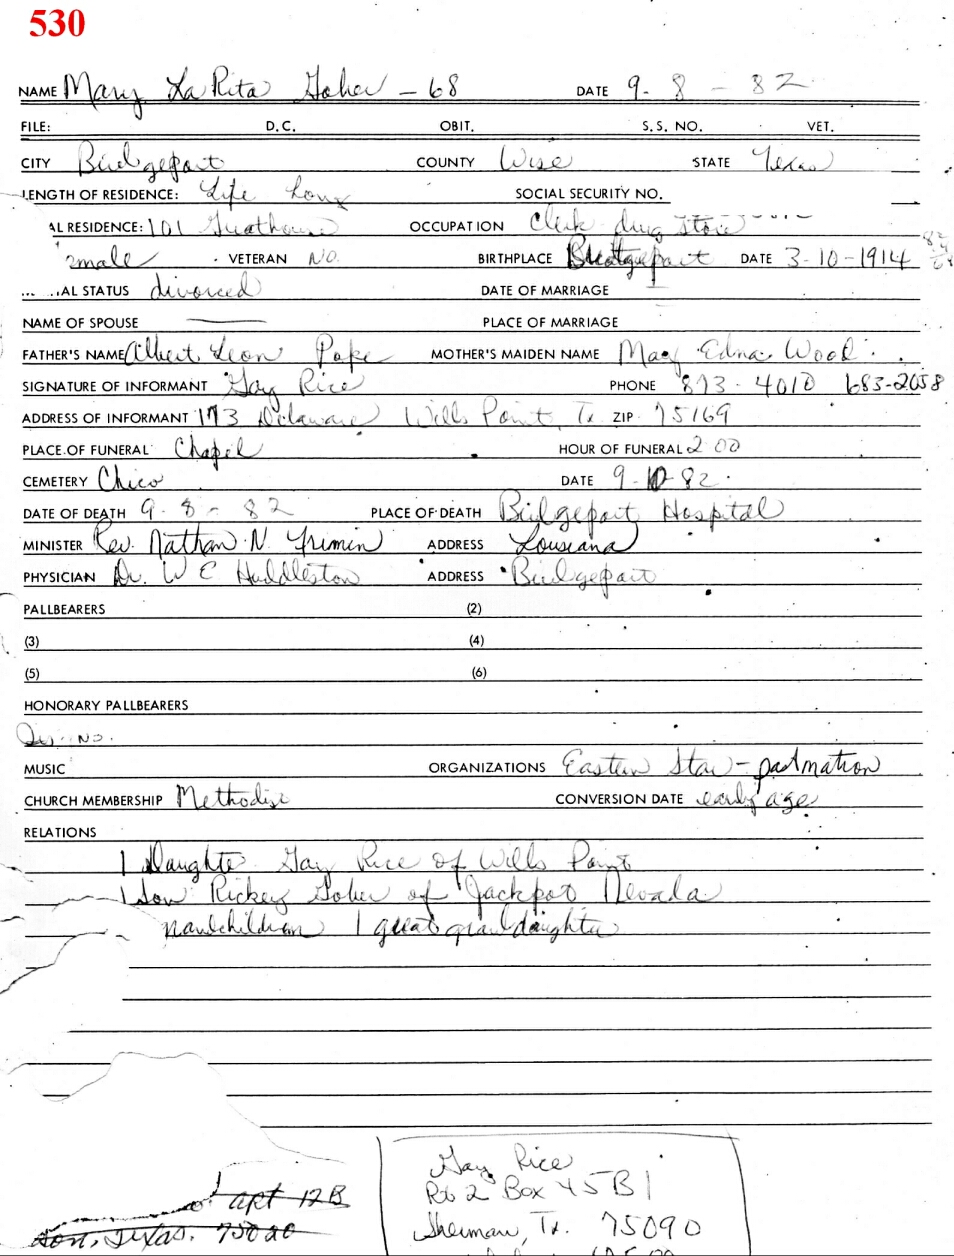 530
NAME Mary LaRita Gober - 68 DATE 9-8-82
FILE: D.C. OBIT. S.S. NO. VET.
CITY Bridgeport COUNTY Wise STATE Texas
LENGTH OF RESIDENCE: Life Long SOCIAL SECURITY NO.
AL RESIDENCE: 101 OCCUPATION Clerk drug store
male VETERAN NO. BIRTHPLACE Bridgeport DATE 3-10-1914
AL STATUS divorced DATE OF MARRIAGE
NAME OF SPOUSE PLACE OF MARRIAGE
FATHER'S NAME Albert Leon Pope MOTHER'S MAIDEN NAME Mary Edna Wood
SIGNATURE OF INFORMANT Gay Rice PHONE 873-4010 683-2058
ADDRESS OF INFORMANT 173 Delaware Wills Point, Tx ZIP 75169
PLACE OF FUNERAL Chapel HOUR OF FUNERAL 2:00
CEMETERY Chico DATE 9-10-82
DATE OF DEATH 9-8-82 PLACE OF DEATH Bridgeport Hospital
MINISTER Rev. Nathan N. Frimin ADDRESS Lousiana
PHYSICIAN Dr. W E Huddleston ADDRESS Bridgeport
PALLBEARERS (2)
(3) (4)
(5) (6)
HONORARY PALLBEARERS
NO.
MUSIC ORGANIZATIONS Eastern Star - past mation
CHURCH MEMBERSHIP Methodist CONVERSION DATE early age
RELATIONS
1 Daughte Gay Rice of Wills Point
1 Son Rickey Gober of Jackpot, Nevada
randchildren 1 great granddaughter
apt 12B
ton, Texas. 75020
Gay Rice
Rt 2 Box 45 B1
Sherman, Tx. 75090